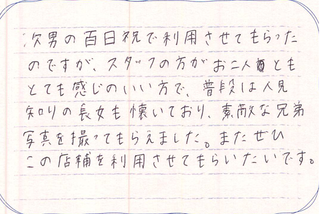 次男の百日祝で利用させてもらった
のですが、スタッフの方がお二人とも
とても感じのいい方で、普段は人見
知りの長女も懐いており、素敵な兄弟
写真を撮ってもらえました。またぜひ
この店舗を利用させてもらいたいです。